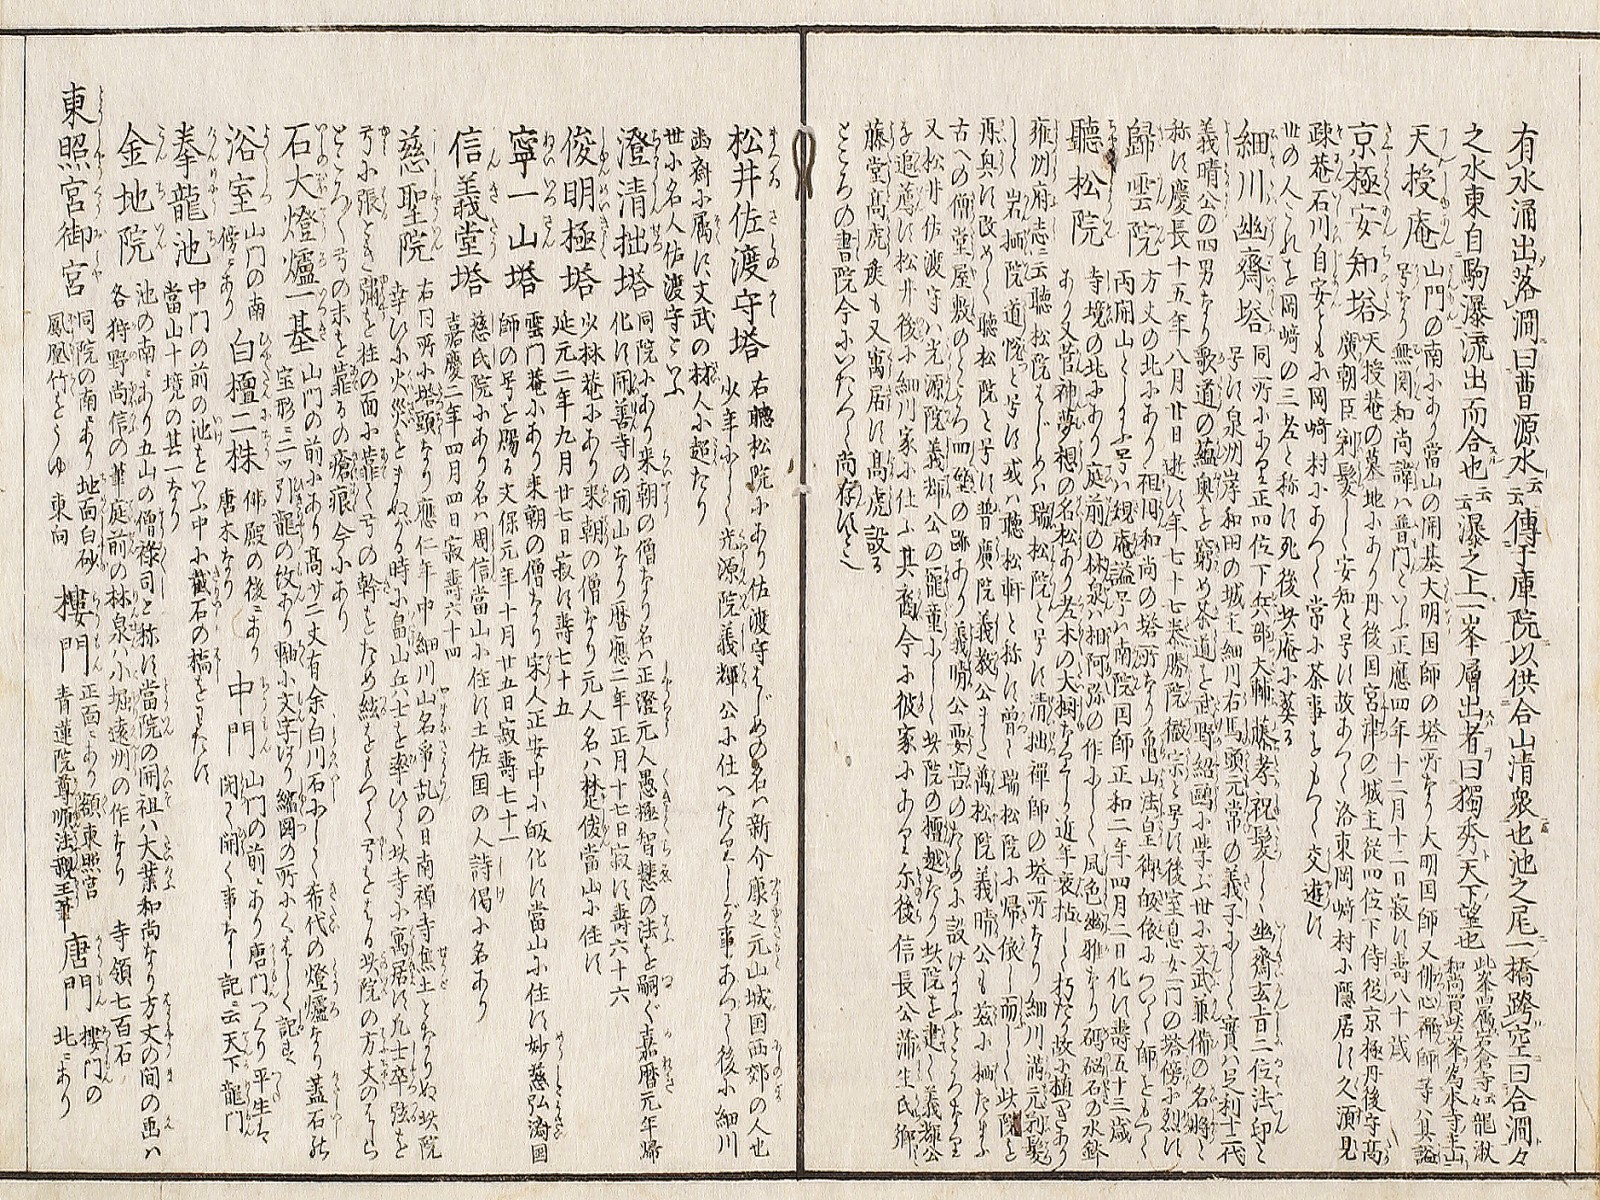 有水涌出落澗曰曹源水云傳于庫院以供合山清衆也池之尾一橋跨空曰合澗々
之水東自駒瀑流出而合也云瀑之上一峯層出者曰獨秀天下望也
天授庵 山門の南にあり當山の開基大明国師の塔所なり大明国師又佛心禅師等ハ其謚
号なり無関和尚諱ハ普門といふ正應四年十二月十二日寂に壽八十歳
京極安知塔 天授菴の墓地にあり丹後国宮津の城主従四位下侍従京極丹後守高
廣朝臣剃髪して安知と号に故あつて洛東岡﨑村に隠居に久須見
疎菴石川自安とも小岡﨑村にあつて常に茶事をもつて交遊に
世の人これを岡﨑の三老と称に死後此庵に葬る
細川幽齋塔 同所にあり正四位下兵部大輔藤孝祝髪して幽齋玄旨二位法印と
号に泉州岸和田の城主細川右馬頭元常の義子にして實ハ足利十二代
義晴公の四男なり歌道の蘊奥を窮め茶道を武野紹鷗に学ぶ世に文武兼備の名将と
称に慶長十五年八月廿日逝に年七十七泰勝院徹宗と号に後室息女一門の塔傍に列に
歸雲院 方丈の北にあり祖圓和尚の塔所なり亀山法皇御皈依によつて師をもつて
両開山としたまふ号ハ規庵謚号ハ南院国師正和二年四月二日化に壽五十三歳
聽松院 寺境の北にあり庭前の林泉ハ相阿弥の作にして風色幽雅なり碼碯石の水鉢
あり又菅神夢想の名松あり老木の大樹なりしが近年衰枯して朽たり故に植つぎあり
雍州府志ニ云聽松院はじめハ瑞松院と号に清拙禅師の塔所なり細川満元剃髪
して岩栖院道悦と号に或ハ聽松軒と称に曽て瑞松院に帰依し而して此院を
再興に改めて聽松院と号に普廣院義教公また萬松院義晴公も茲に栖たまふ
古への僧堂屋敷のところ四壁の跡あり義晴公要害のために設けたまふところなり
又松井佐渡守ハ光源院義輝公の寵童にして此院の檀越たり此院を建て義輝公
を追薦に松井後に細川家に仕ふ其裔今に彼家にあり尓後信長公蒲生氏郷
藤堂高虎矦も又寓居に高虎設る
ところの書院今にいたつて尚存にと云
松井佐渡守塔 右聽松院にあり佐渡守はじめの名ハ新介康之元山城国西郊の人也
少年にして光源院義輝公に仕へたりしが事あつて後に細川
幽齋に属に文武の材人に超たり
世に名人佐渡守といふ
澄清拙塔 同院にあり来朝の僧なり名ハ正澄元人愚極智慧の法を嗣ぐ嘉暦元年歸
化に開善寺の開山なり暦應二年正月十七日寂に壽六十六
俊明極塔 少林菴にあり来朝の僧なり元人名ハ楚俊當山に住に
延元二年九月廿七日寂に壽七十五
寧一山塔 雲門菴にあり来朝の僧なり宋人正安中に皈化に當山に住に妙慈弘濟国
師の号を賜る文保元年十月廿五日寂壽七十一
信義堂塔 慈氏院にあり名ハ周信當山に住に土佐国の人詩偈に名あり
嘉慶二年四月四日寂壽六十四
慈聖院 右同所小塔頭なり應仁年中細川山名争乱の日南禅寺焦土となりぬ此院
幸ひに火災をまぬがる時に畠山兵士を率ひて此寺に寓居に九士卒弦を
弓に張とき弭を柱の面に靠て弓の幹をため絃をもつて弓をはる此院の方丈のはしら
ところ〳〵弓の末を靠るの瘡痕今にあり
石大燈爐一基 山門の前にあり高サ二丈有余白川石にして希代の燈爐なり蓋石に
宝形ニ二ツ引龍の紋あり軸に文字ほり縮図の所にくはしく記に
浴室 山門の南傍ニあり 白檀二株 佛殿の後ニあり唐木なり 中門 山門の前ニあり唐門つくり平生ハ閉て開く事なし記ニ云天下龍門
拳龍池 中門の前の池をいふ中に截石の橋をわたに
當山十境の其一なり
金地院 池の南ニあり五山の僧禄司と称に當院の開祖ハ大葉和尚なり方丈の間の画ハ
各狩野尚信の筆庭前の林泉ハ小堀遠州の作なり 寺領七百石
東照宮御宮 同院の南ニあり地面白砂鳳凰竹をうゆ東向 樓門 正面ニあり額東照宮青蓮院尊師法親王筆 唐門 樓門の北ニあり